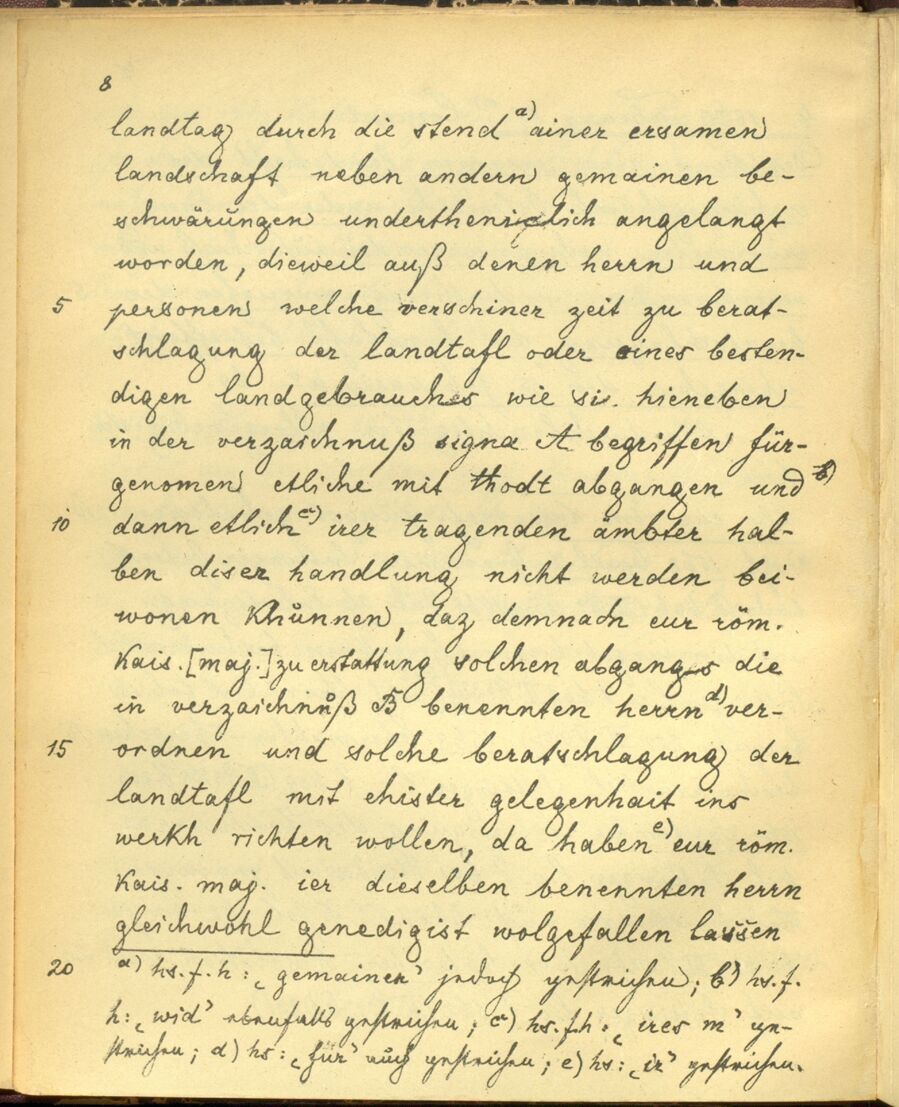 8
landtag durch die stend a) ainer ersamen
landschaft neben andern gemainen be-
schwärŭngen undertheniclich angelangt
worden, dieweil auß denen herrn und
5 personen welche verschiner zeit zu berat-
schlagung der landtafl oder eines besten-
digen landgebrauches wie sie hieneben
in der verzaichnuß signa A begriffen für-
genomen etliche mit thodt abgangen und b)
10 dann etlich c) irer tragenden ämbter hal-
ben diser handlung nicht werden bei-
wonen khůnnen, daz demnach eur röm.
kais. [maj.] zu erstattung solchen abganges die
in verzaichnůß B benennten herrn d) ver-
15 ordnen und solche beratschlagung der
landtafl mit ehister gelegenhait ins
werkh richten wollen, da haben e) eur röm.
kais. maj. ier dieselben benennten herrn
gleichwohl genedigist wolgefallen lassen
20 a) hs. f. h: ‚gemainer’ jedoch gestrichen; b) hs. f.
h: ‚wid’ ebenfalls gestrichen; c) hs. f. h: ‚ires m’ ge-
strichen; d) hs: ‚für’ auch gestrichen; e) hs: ‚ir’ gestrichen.